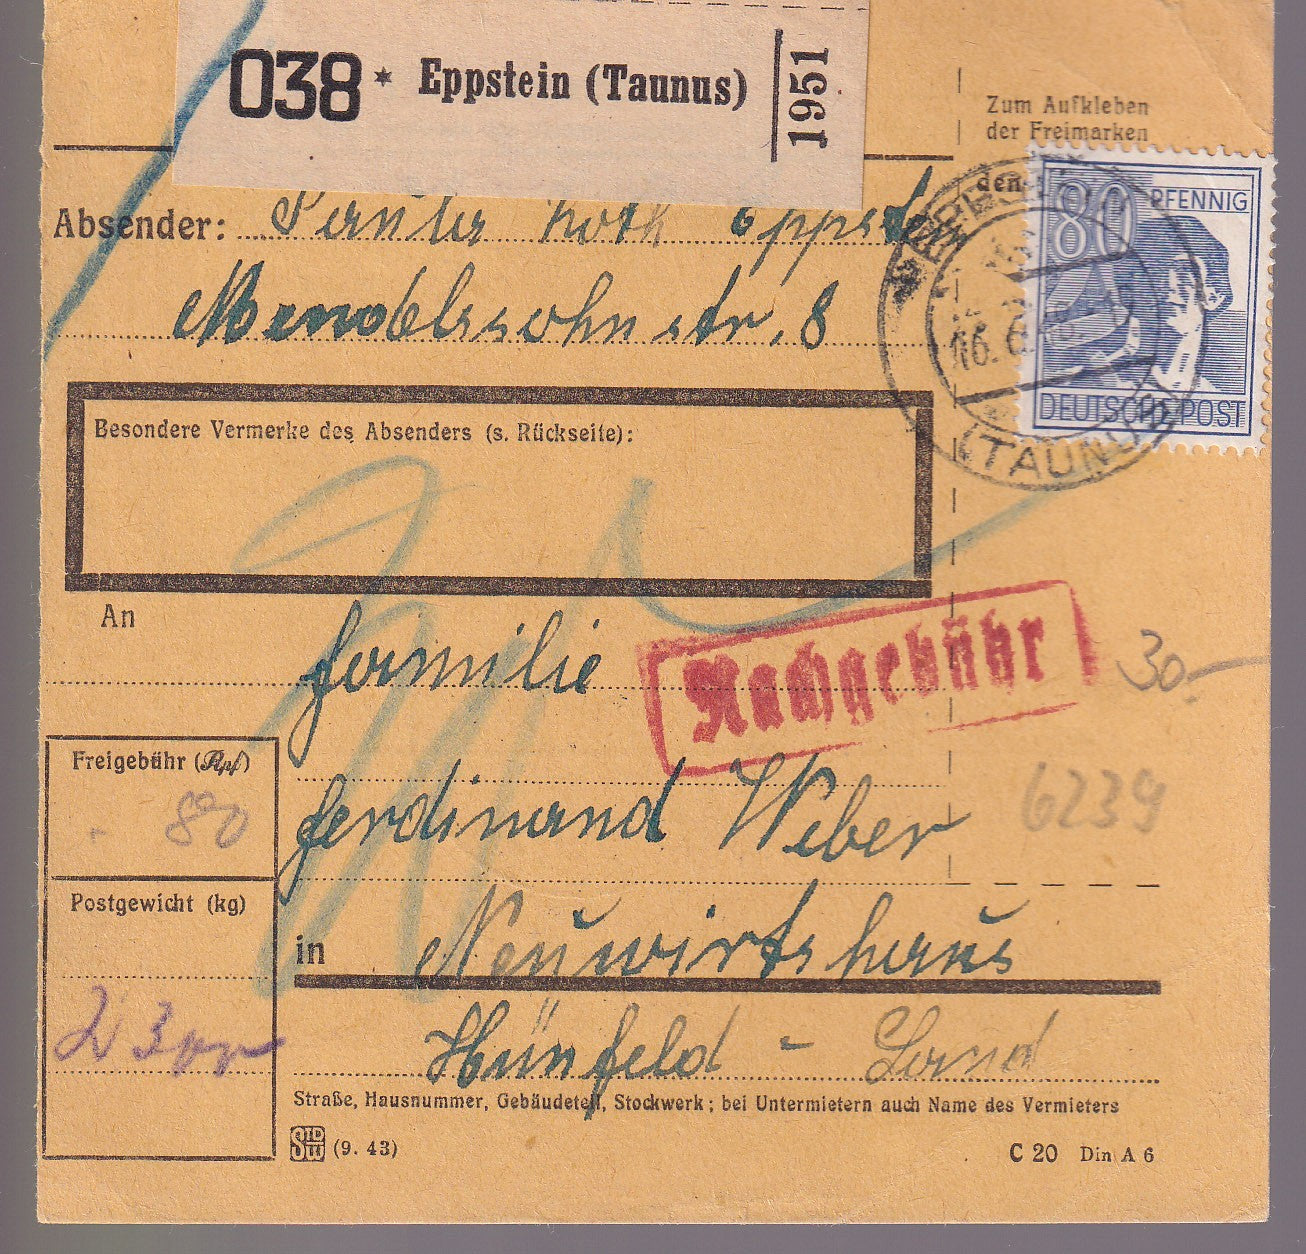 038 * Eppstein (Taunus) 1951
Zum Aufkleben
der Freimarken
den
80 PFENNIG
DEUTSCHE POST
16.6.48
(TAUNUS)
Absender: Roth Eppst
Mendelssohnstr. 8
Besondere Vermerke des Absenders (s. Rückseite):
An
Familie
Nachgebühr
30.-
Freigebühr (Rpf)
80
Ferdinand Weber
6239
Postgewicht (kg)
in Neuwirtshaus
Hünfeld - Land
Straße, Hausnummer, Gebäudeteil, Stockwerk; bei Untermietern auch Name des Vermieters
(9. 43)
C 20 Din A 6